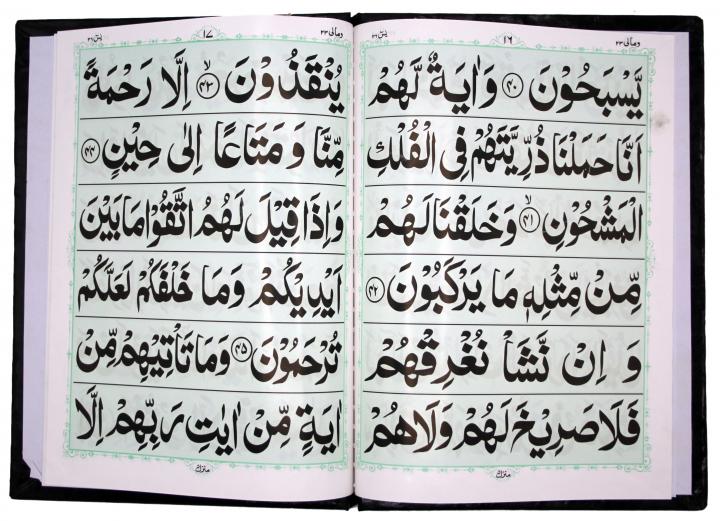 ومالی ٢٣ ١٦ یٰسٓ ٣٦
يَّسْبَحُوْنَ ﴿۴۰﴾ وَاٰيَةٌ لَّهُمْ
اَنَّا حَمَلْنَا ذُرِّيَّتَهُمْ فِي الْفُلْكِ
الْمَشْحُوْنِ ﴿ۙ۴۱﴾ وَخَلَقْنَا لَهُمْ
مِّنْ مِّثْلِهٖ مَا يَرْكَبُوْنَ ﴿۴۲﴾
وَ اِنْ نَّشَاْ نُغْرِقْهُمْ
فَلَا صَرِيْخَ لَهُمْ وَلَا هُمْ
منزل
ومالی ٢٣ ١٧ یٰسٓ ٣٦
يُنْقَذُوْنَ ﴿ۙ۴۳﴾ اِلَّا رَحْمَةً
مِّنَّا وَ مَتَاعًا اِلٰى حِيْنٍ ﴿۴۴﴾
وَاِذَا قِيْلَ لَهُمُ اتَّقُوْا مَا بَيْنَ
اَيْدِيْكُمْ وَمَا خَلْفَكُمْ لَعَلَّكُمْ
تُرْحَمُوْنَ ﴿۴۵﴾ وَمَا تَاْتِيْهِمْ مِّنْ
اٰيَةٍ مِّنْ اٰيٰتِ رَبِّهِمْ اِلَّا
منزل